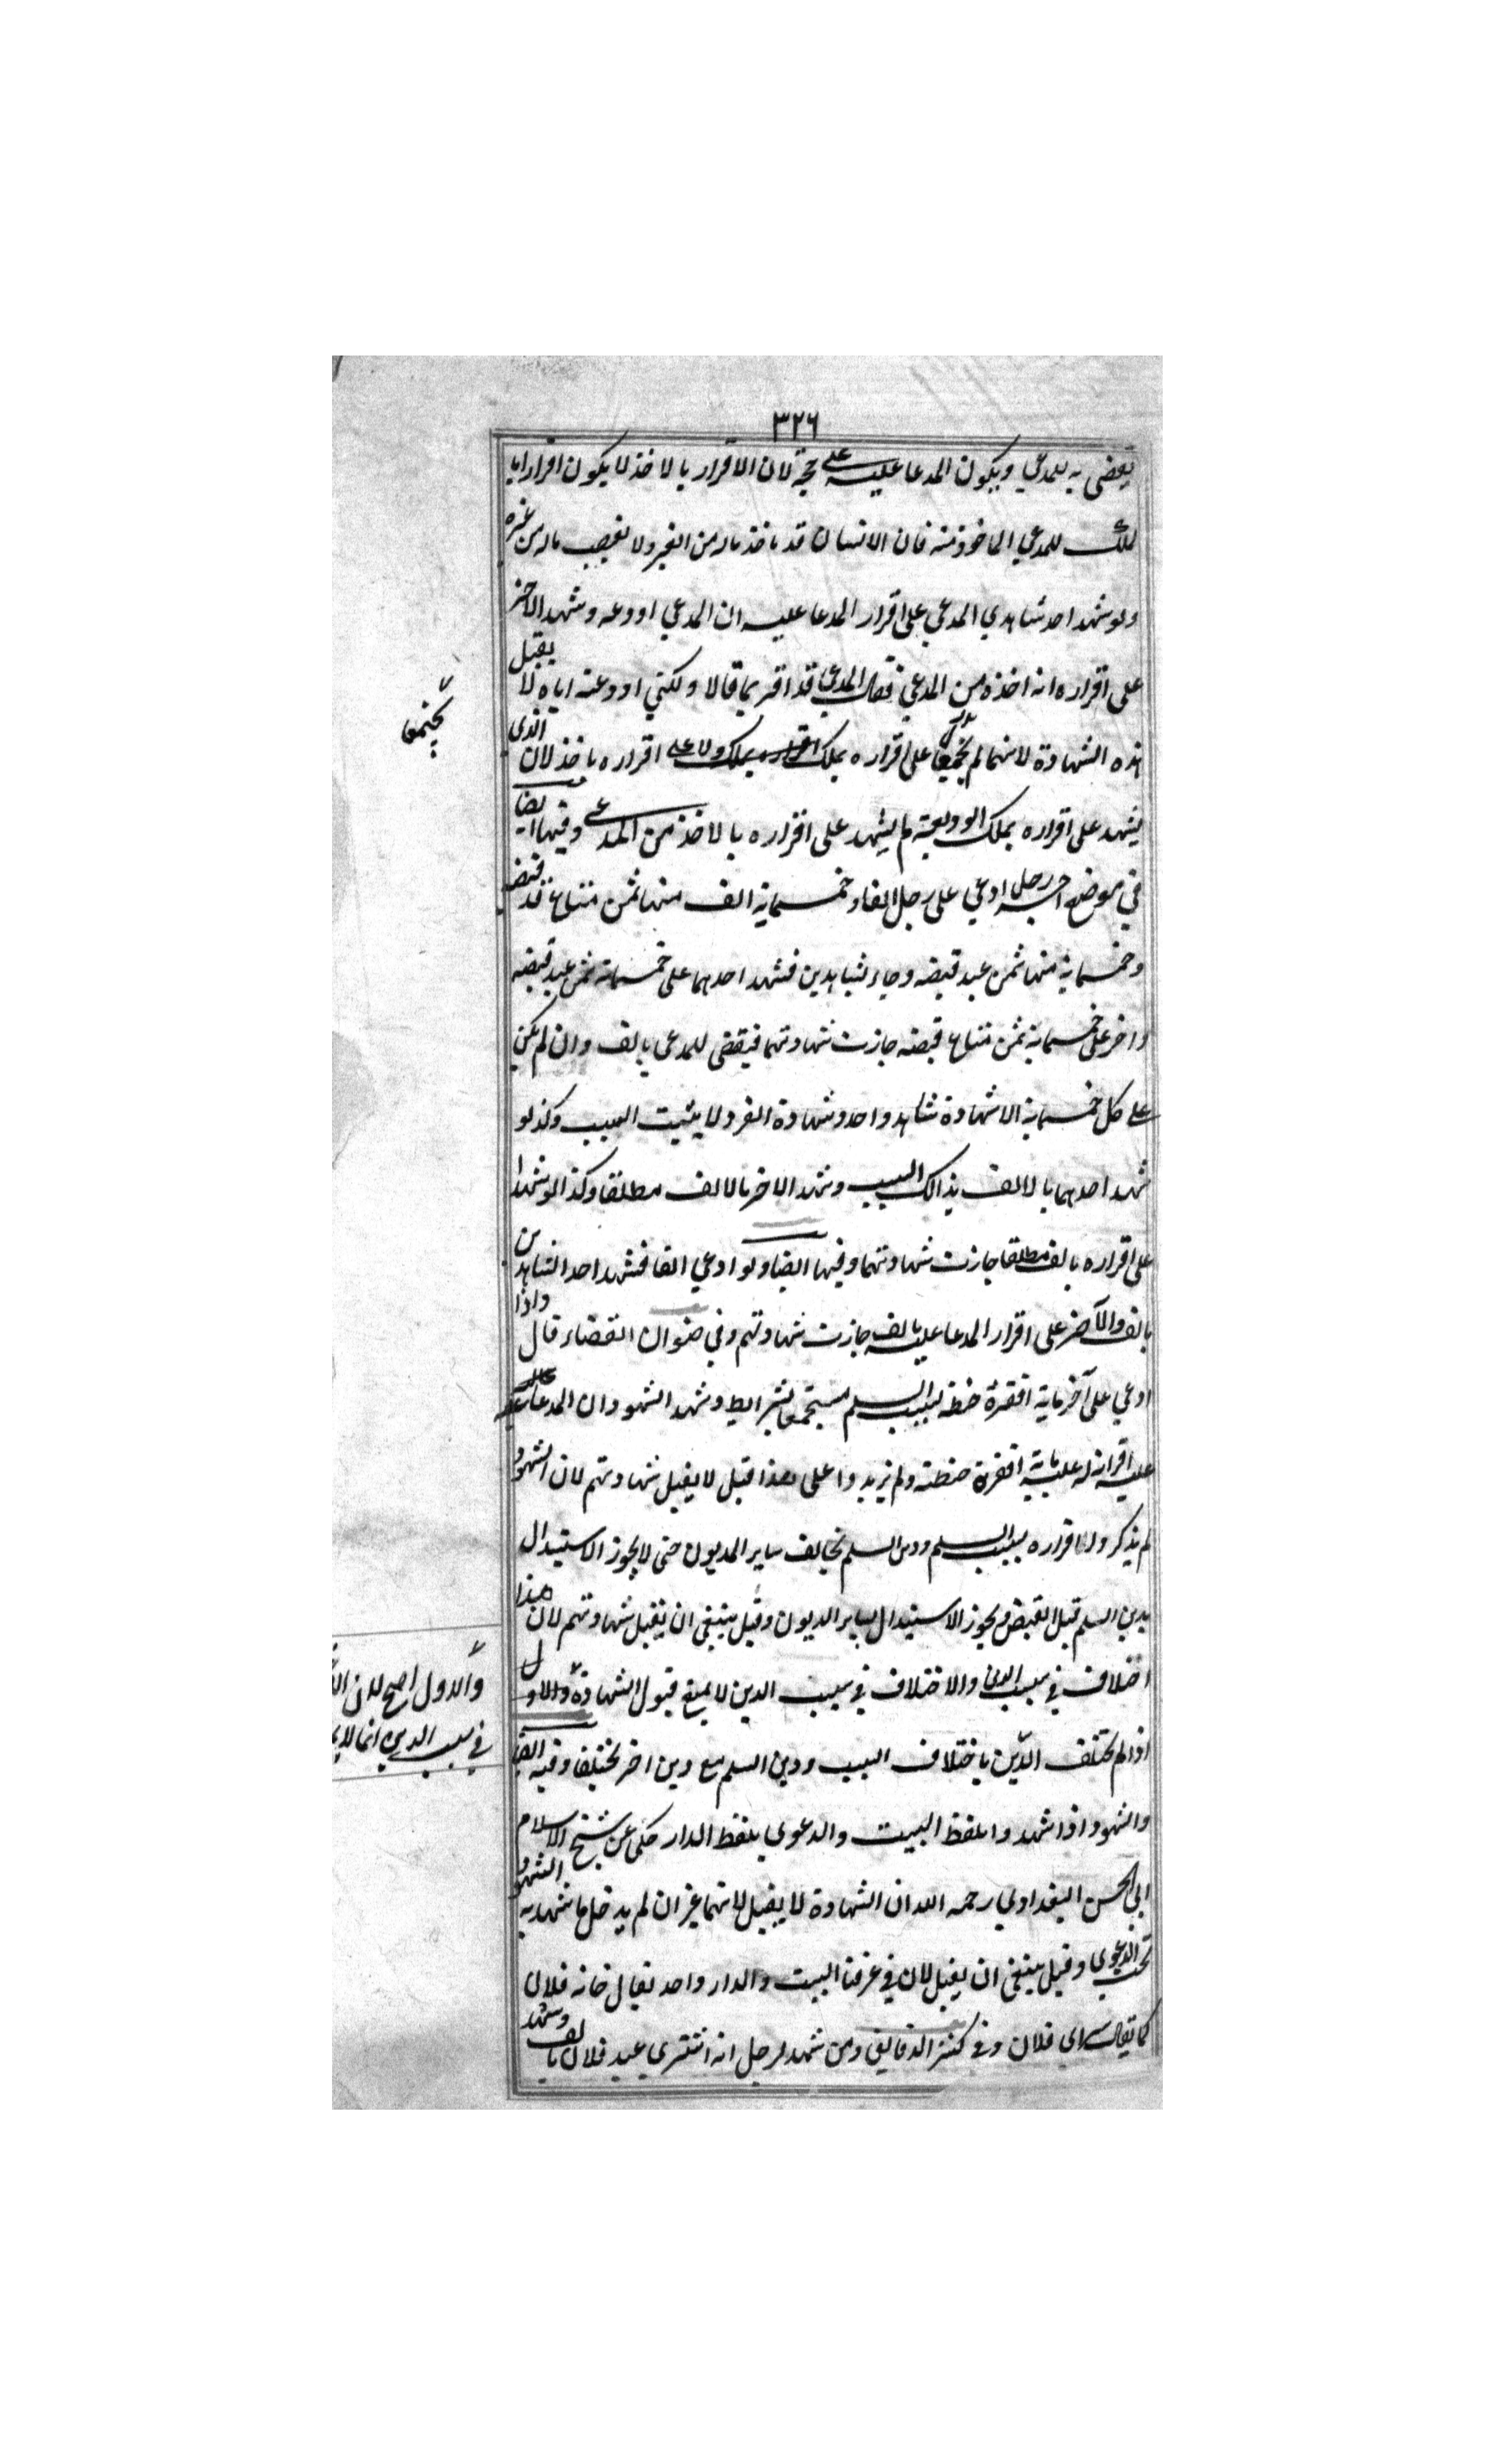 ٣٢٦
يقضى به للمدعي ويكون المدعا عليه على حجة لان الاقرار بالاخذ لا يكون اقرارا با
لملك للمدعي الماخوذ منه فان الانسان قد ياخذ ماله من الغير ولا يغصب ماله من غيره
ولو شهد احد شاهدي المدعي على اقرار المدعا عليه ان المدعي اودعه وشهد الاخر
على اقراره انه اخذه من المدعي فقال المدعي قد اقر بما قالا ولكني اودعته اياه لا يقبل
هذه الشهادة لانهما لم يجتمعا على اقراره بملك ولا على اقراره باخذ لان الذي
يشهد على اقراره بملك الوديعة لم يشهد على اقراره بالاخذ من المدعي وفيها ايضا
في موضع اخر رجل ادعي على رجل الفا وخمسماية الف منها ثمن متاع قد قبضه
وخمسماية منها ثمن عبد قبضه وجاء بشاهدين فشهد احدهما على خمسماية ثمن عبد قبضه
واخر على خمسماية ثمن متاع قبضه جازت شهادتهما فيقضى للمدعي بالف وان لم يكن
على كل خمسماية الا شهادة شاهد واحد وشهادة الفرد لا يثبت السبب وكذلو
شهد احدهما بالالف بذالك السبب وشهد الاخر بالالف مطلقا وكذا لو شهدا
على اقراره بالف مطلقا جازت شهادتهما وفيها ايضا ولو ادعي الفا فشهد احد الشاهدين
بالف والآخر على اقرار المدعا عليه بالف جازت شهادتهم وفي صنوان القضاء قال واذا
ادعي على آخر ماية اقفزة حنطة بسبب السلم مستجمعا بشرايط وشهد الشهود ان المدعا
عليه اقر ان له عليه ماية اقفزة حنطة ولم يزيدوا على هذا قيل لا يقبل شهادتهم لان الشهود
لم يذكروا اقراره بسبب السلم ودين السلم يخالف ساير المديون حتى لا يجوز الاستبدال
بدين السلم قبل القبض ويجوز الاستبدال بساير الديون وقيل ينبغي ان يقبل شهادتهم لان هذا
اختلاف في سبب الدين والاختلاف في سبب الدين لا يمنع قبول الشهادة والاول
اذا لم يختلف الدين باختلاف السبب ودين السلم مع دين اخر يختلف وفيه ايضا
والشهود اذا شهدوا بلفظ البيت والدعوى بلفظ الدار حكى عن شيخ الاسلام
ابي الحسن البغدادي رحمه الله ان الشهادة لا يقبل لانهما غير ان لم يدخل ما شهد به الشهود
تحت الدعوى وقيل ينبغي ان يقبل لان في عرفنا البيت والدار واحد يقال خانه فلان
كما يقال سراى فلان وفي كنز الدقايق ومن شهد لرجل انه اشترى عبد فلان بالف وشهد
يجتمعا
والاول اصح لان
في سبب الدين انما لا